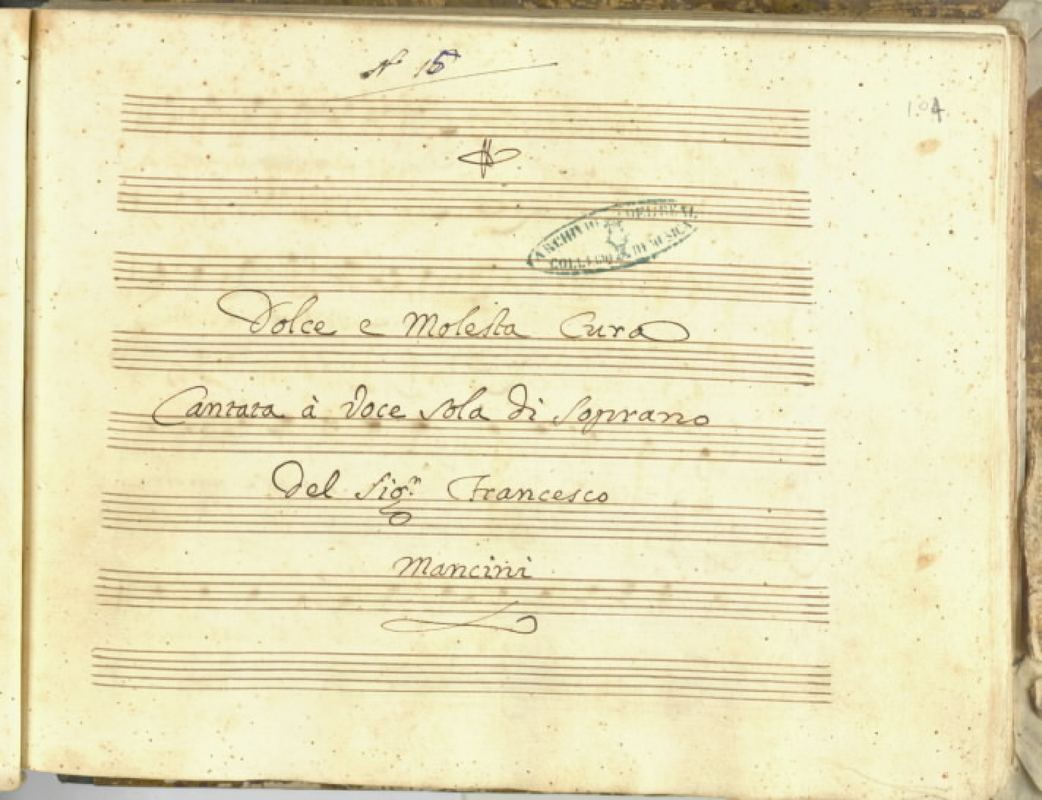 N° 15
104
ARCHIVIO DEL REAL
COLLEGIO DI MUSICA
Dolce e Molesta Cura
Cantata à Voce Sola di Soprano
Del Sig.r Francesco
Mancini